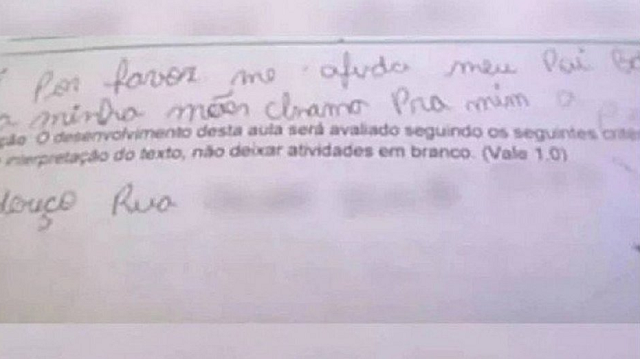 Por favor me ajuda meu Pai
minha mãe chramo Pra mim a
ção O desenvolvimento desta aula será avaliado seguindo os seguintes crité
interpretação do texto, não deixar atividades em branco. (Vale 1.0)
Rua